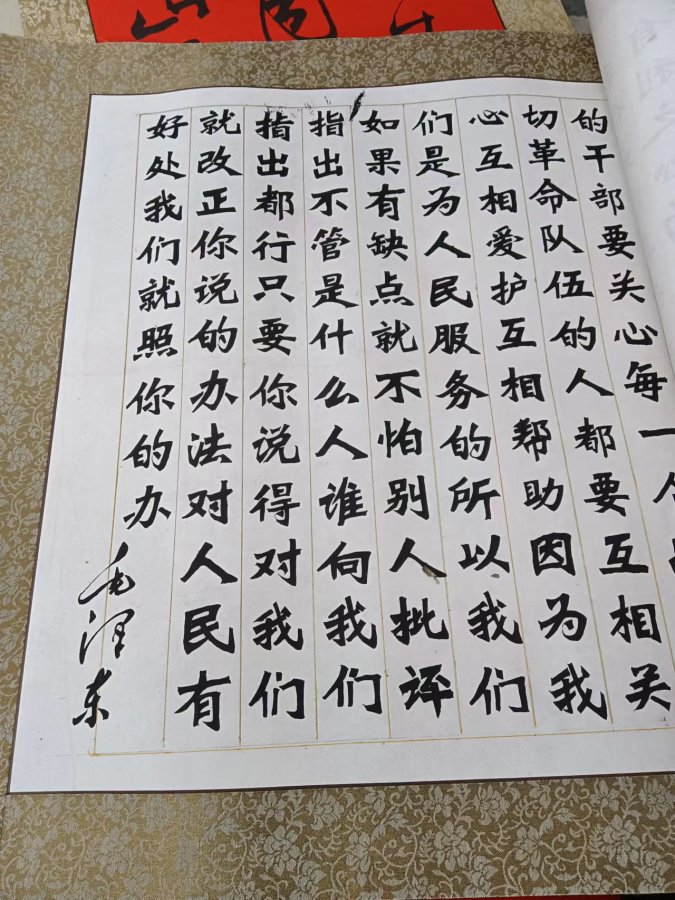 的干部要关心每一个
切革命队伍的人都要互相关
心互相爱护互相帮助因为我
们是为人民服务的所以我们
如果有缺点就不怕别人批评
指出不管是什么人谁向我们
指出都行只要你说得对我们
就改正你说的办法对人民有
好处我们就照你的办
毛泽东